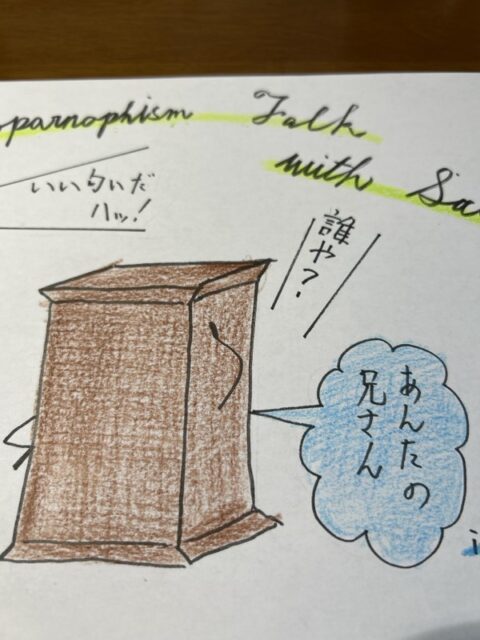 parnophism Talk
with Sa
いい匂いだ
ハッ!
誰や?
あんたの
兄さん
i